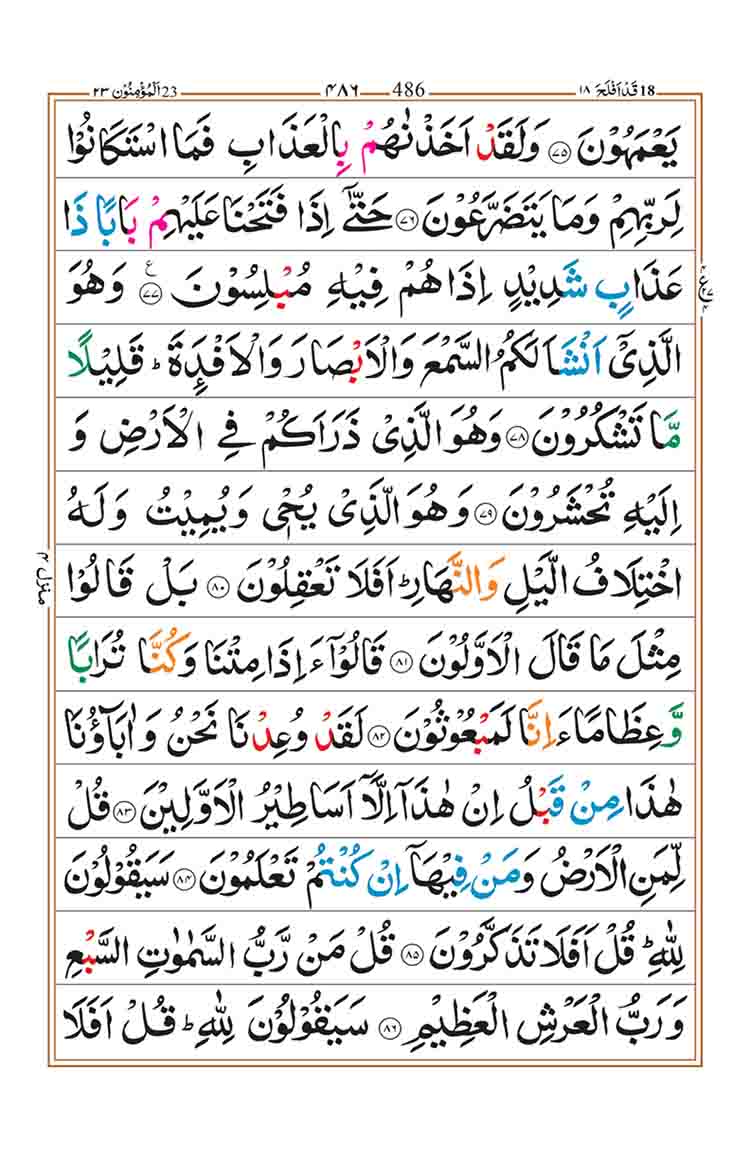 18 قَدْ اَفْلَحَ ۱۸ 486 ۴۸۶ 23 اَلْمُؤْمِنُوْن ۲۳
يَعْمَهُوْنَ ۷۵ وَلَقَدْ اَخَذْنٰهُمْ بِالْعَذَابِ فَمَا اسْتَكَانُوْا
لِرَبِّهِمْ وَمَا يَتَضَرَّعُوْنَ ۷۶ حَتّٰۤى اِذَا فَتَحْنَا عَلَيْهِمْ بَابًا ذَا
عَذَابٍ شَدِيْدٍ اِذَا هُمْ فِيْهِ مُبْلِسُوْنَ ۷۷ ع وَهُوَ
الَّذِيْۤ اَنْشَاَ لَكُمُ السَّمْعَ وَالْاَبْصَارَ وَالْاَفْـِٕدَةَ ؕ قَلِيْلًا
مَّا تَشْكُرُوْنَ ۷۸ وَهُوَ الَّذِيْ ذَرَاَكُمْ فِي الْاَرْضِ وَ
اِلَيْهِ تُحْشَرُوْنَ ۷۹ وَهُوَ الَّذِيْ يُحْيٖ وَيُمِيْتُ وَلَهُ
اخْتِلَافُ الَّيْلِ وَالنَّهَارِ ؕ اَفَلَا تَعْقِلُوْنَ ۸۰ بَلْ قَالُوْا
مِثْلَ مَا قَالَ الْاَوَّلُوْنَ ۸۱ قَالُوْۤا ءَاِذَا مِتْنَا وَكُنَّا تُرَابًا
وَّعِظَامًا ءَاِنَّا لَمَبْعُوْثُوْنَ ۸۲ لَقَدْ وُعِدْنَا نَحْنُ وَاٰبَآؤُنَا
هٰذَا مِنْ قَبْلُ اِنْ هٰذَاۤ اِلَّاۤ اَسَاطِيْرُ الْاَوَّلِيْنَ ۸۳ قُلْ
لِّمَنِ الْاَرْضُ وَمَنْ فِيْهَاۤ اِنْ كُنْتُمْ تَعْلَمُوْنَ ۸۴ سَيَقُوْلُوْنَ
لِلّٰهِ ؕ قُلْ اَفَلَا تَذَكَّرُوْنَ ۸۵ قُلْ مَنْ رَّبُّ السَّمٰوٰتِ السَّبْعِ
وَرَبُّ الْعَرْشِ الْعَظِيْمِ ۸۶ سَيَقُوْلُوْنَ لِلّٰهِ ؕ قُلْ اَفَلَا
منزل ۴